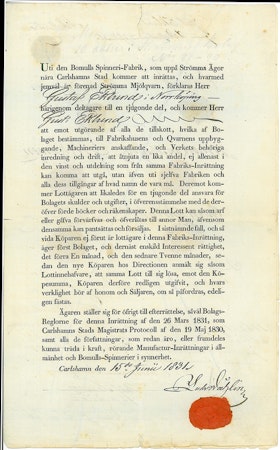 Uti den Bomulls Spinneri-Fabrik, som uppå Strömma Ägor
nära Carlshamns Stad kommer att inrättas, och hvarmed
jemväl är förenad Strömma Mjölqvarn, förklaras Herr
Gustaf Eklund i Norrköping
härigenom deltagare till en tjugonde del, och kommer Herr
Gust. Eklund
att emot utgörande af alla de tillskott, hvilka af Bo-
laget bestämmas, till Fabrikshusens och Qvarnens uppbyg-
gande, Machineriers anskaffande, och Verkets behöriga
inredning och drift, att åtnjuta en lika andel, ej allenast i
den vinst och utdelning som från samma Fabriks-Inrättning
kan komma att utgå, utan äfven uti sjelfva Fabriken och
alla dess tillgångar af hvad namn de vara må. Deremot kom-
mer Lottägaren att likaledes för en tjugonde del ansvara för
Bolagets skulder och utgifter, i öfverensstämmelse med de der-
öfver förde böcker och räkenskaper. Denna Lott kan såsom arf
eller gifvo förvärfvas och öfverlåtas till annor Man, äfvensom
densamma kan pantsättas och försäljas. I sistnämnde fall, och så
vida Köparen ej förut är lottägare i denna Fabriks-Inrättning,
äger först Bolaget, och dernäst enskild Interessent rättighet,
det förra En månad, och den sednare Tvenne månader, se-
dan den nye Köparen hos Directionen anmält sig såsom
Lottinnehafvare, att samma Lott till sig lösa, emot den Kö-
pesumma, Köparen derföre redligen utgifvit, och hvars
verklighet bör af honom och Säljaren, om så påfordras, ed-
eligen fästas.
Ägaren ställer sig för öfrigt till efterrättelse, såväl Bolags-
Reglorne för denna Inrättning af den 26 Mars 1831, som
Carlshamns Stads Magistrats Protocoll af den 19 Maj 1830,
samt alla de författningar, som redan äro, eller framdeles
kunna träda i kraft, rörande Manufactur-Inrättningar i all-
mänhet och Bomulls-Spinnerier i synnerhet.
Carlshamn den 15de Junii 1831